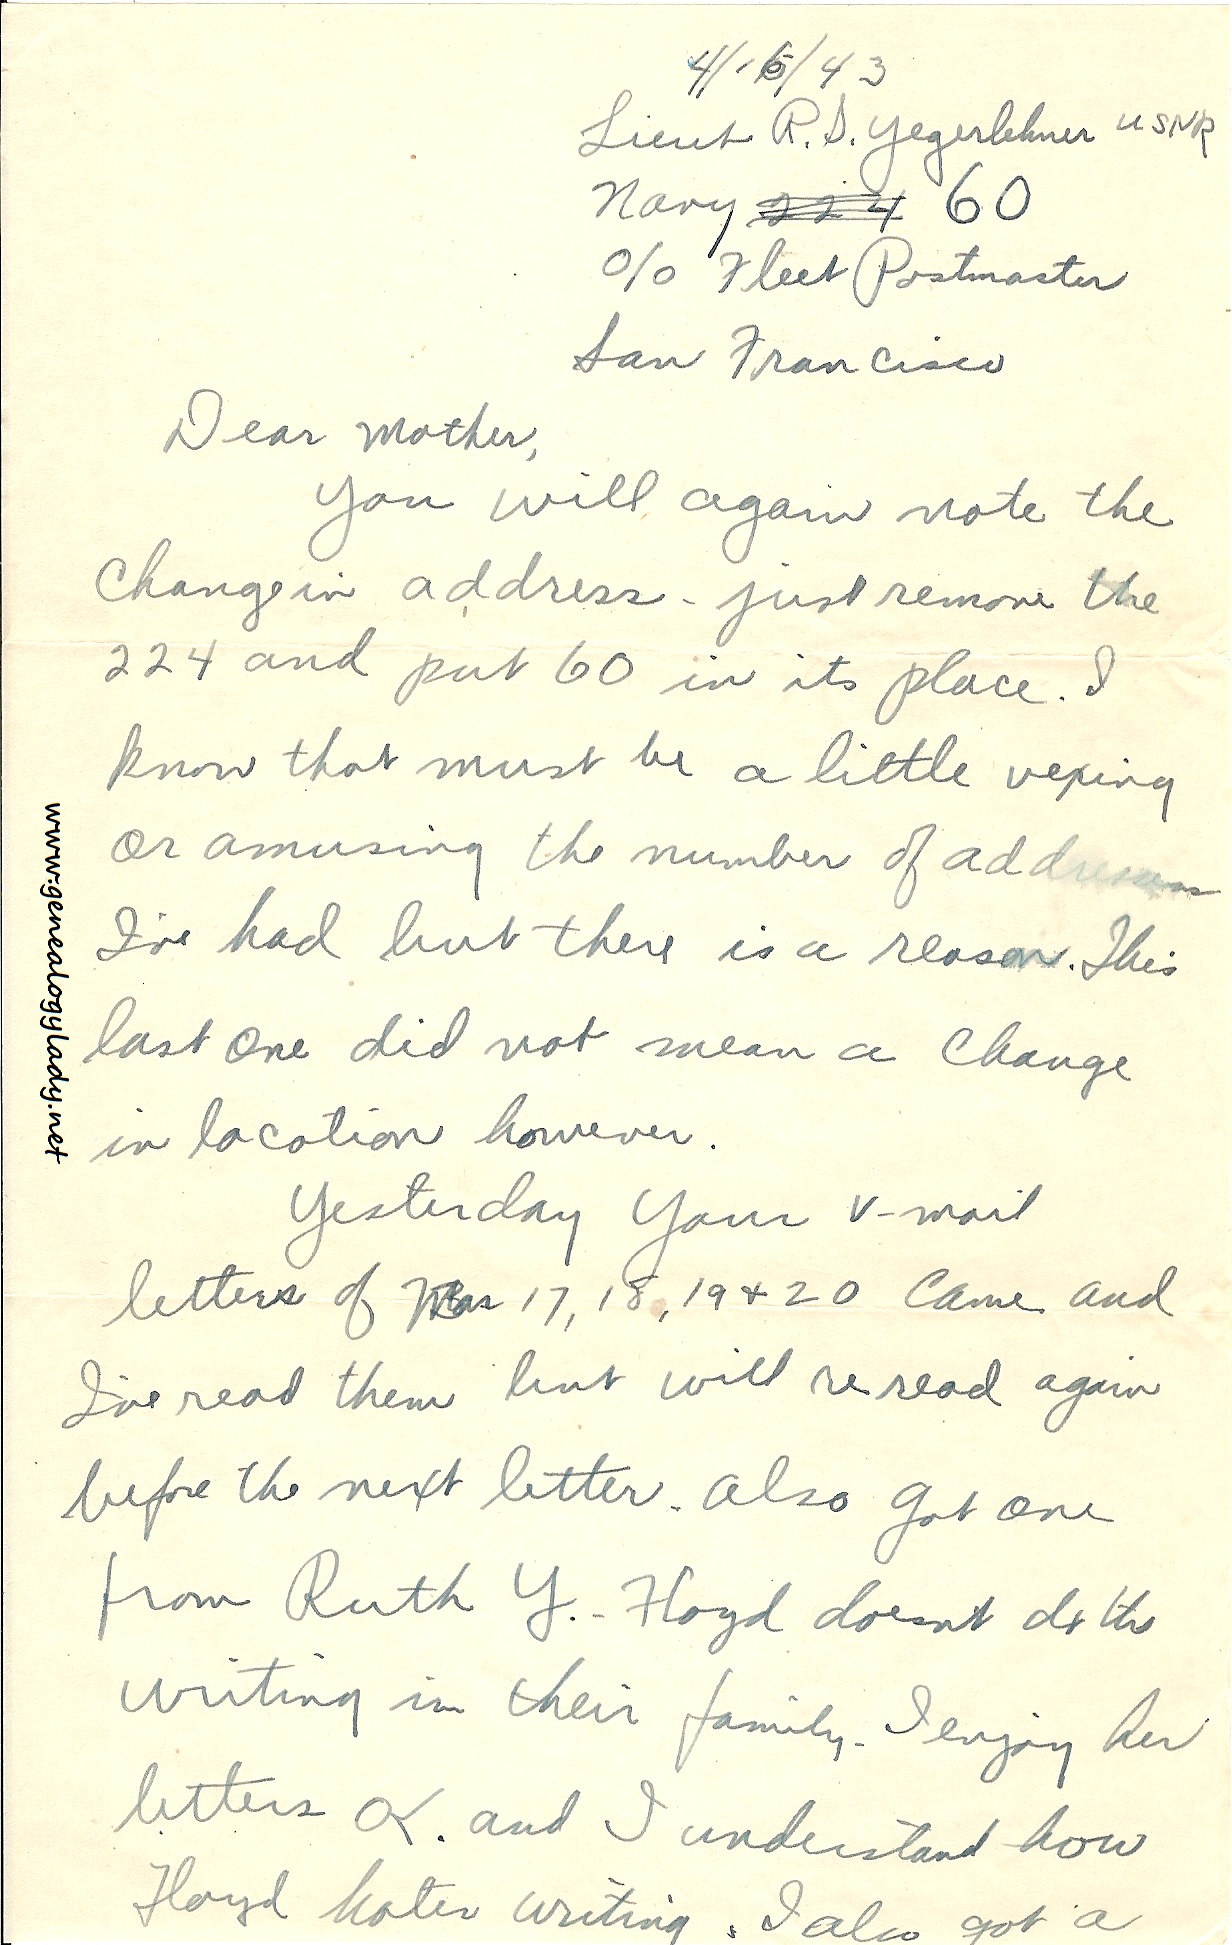 4/15/43
Lieut R.S. Yegerlehner USNR
Navy 224 60
c/o Fleet Postmaster
San Francisco
Dear Mother,
You will again note the
change in address - just remove the
224 and put 60 in its place. I
know that must be a little vexing
or amusing the number of addresses
I've had but there is a reason. This
last one did not mean a change
in location however.
Yesterday your v-mail
letters of Mar 17, 18, 19 + 20 came and
I've read them but will reread again
before the next letter. Also got one
from Ruth Y. - Floyd doesnt do the
writing in their family. I enjoy her
letters OK. and I understand how
Floyd hates writing. I also got a
www.genealogylady.net